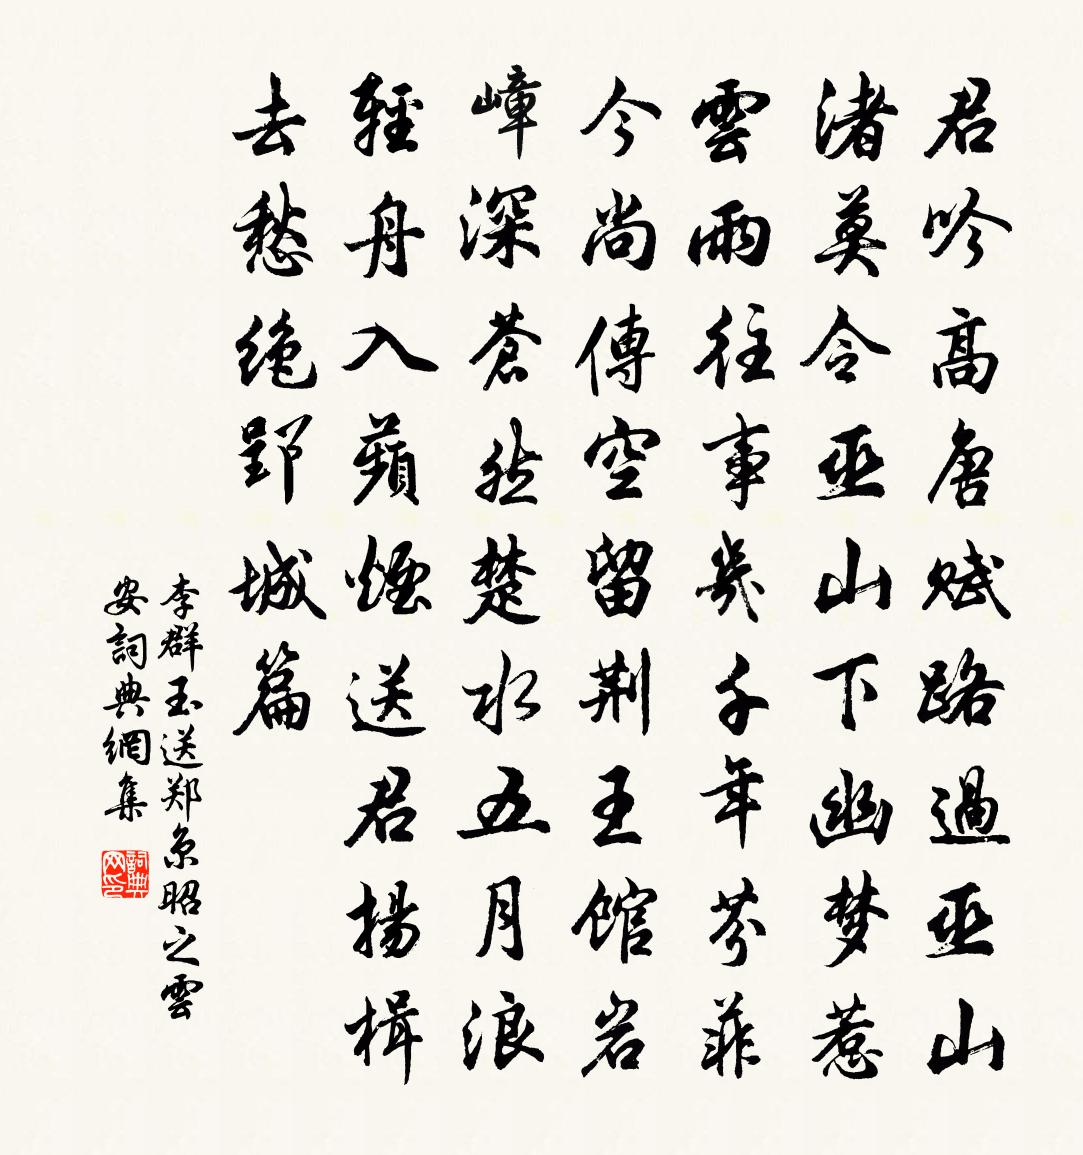 君吟高唐赋路過巫山
渚莫令巫山下幽梦惹
雲雨往事幾千年芬菲
今尚傳空留荆王馆岩
嶂深蒼然楚水五月浪
輕舟入蘋煙送君揚楫
去愁绝郢城篇
李群玉送郑京昭之雲
安詞典網集
詞典网印